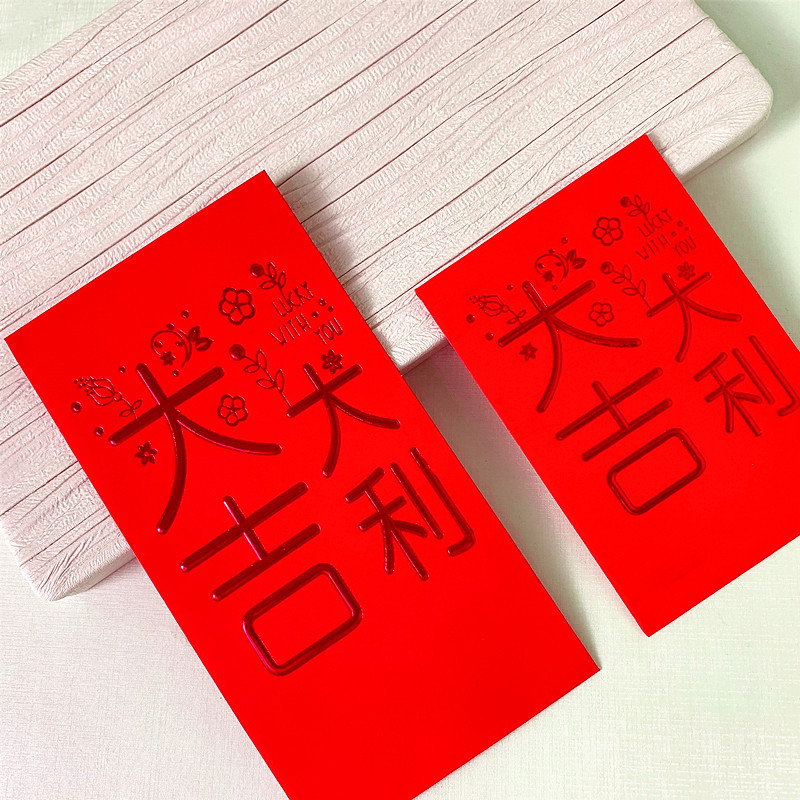 LUCKY
WITH
YOU
大吉
大利
LUCKY
WITH
YOU
大吉
大利